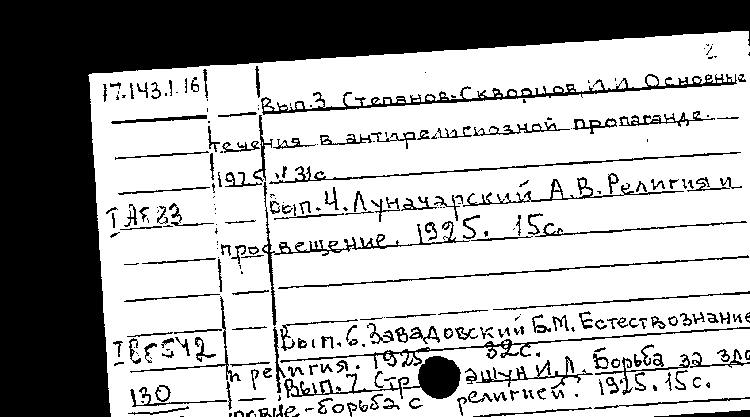 2
17.143.1.16
Вып.3 Степанов-Скворцов И.И. Основные
течения в антирелигиозной пропаганде.
1925. 31с.
Вып.4. Луначарский А.В. Религия и
I АЕ 83
просвещение. 1925. 15с.
Вып.6. Завадовский Б.М. Естествознание
I ВЕ 542
и религия. 1925. 32с.
Вып.7 Стр ашун И.Д. Борьба за здо
130
ровье - борьба с религией. 1925. 15с.